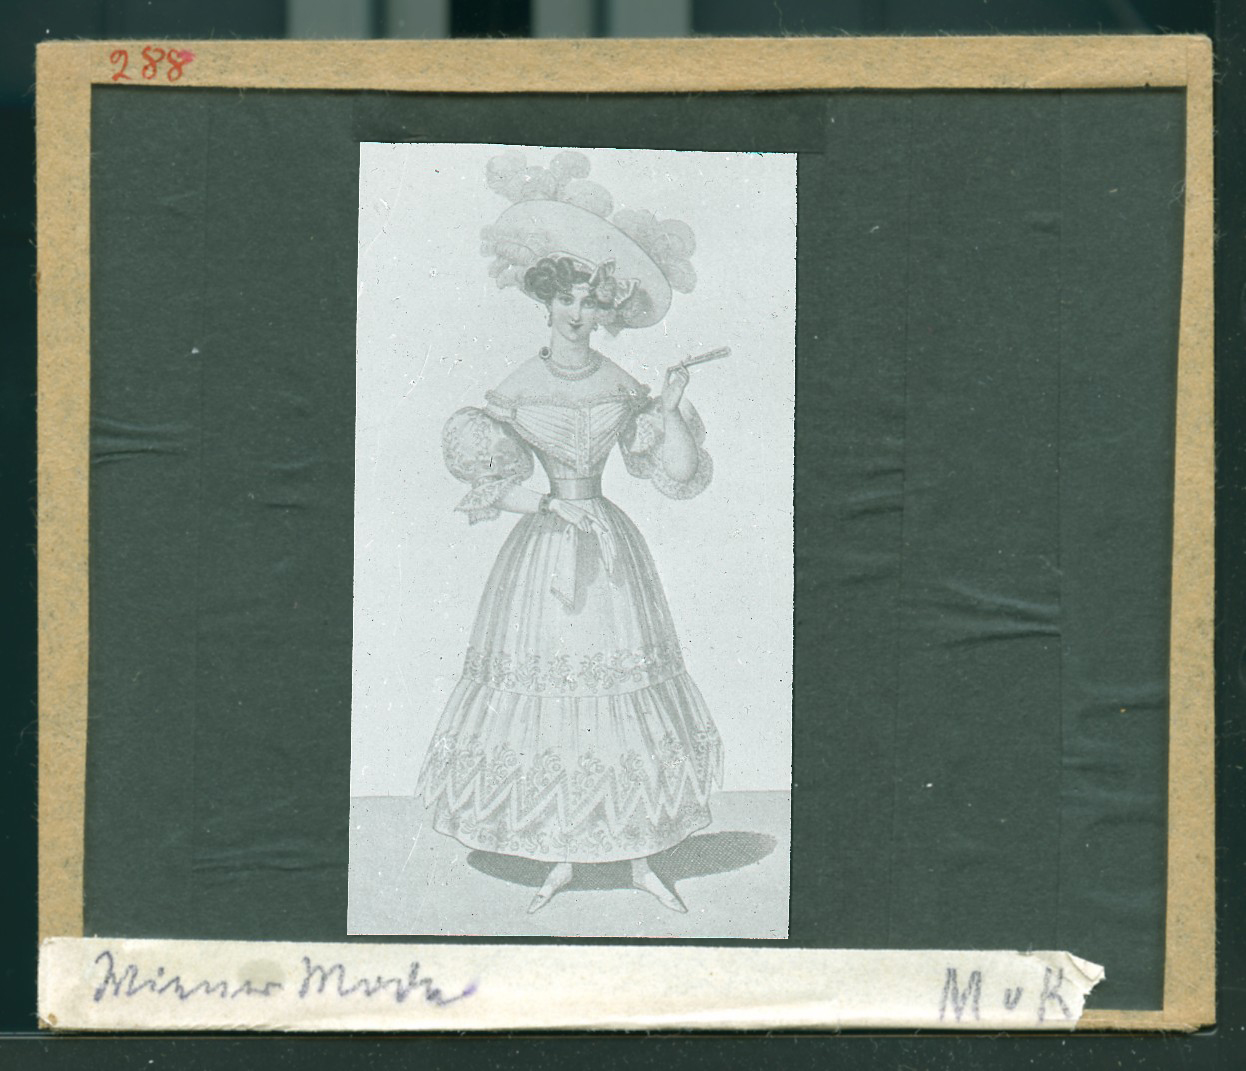 288
Wiener Mode
M v K